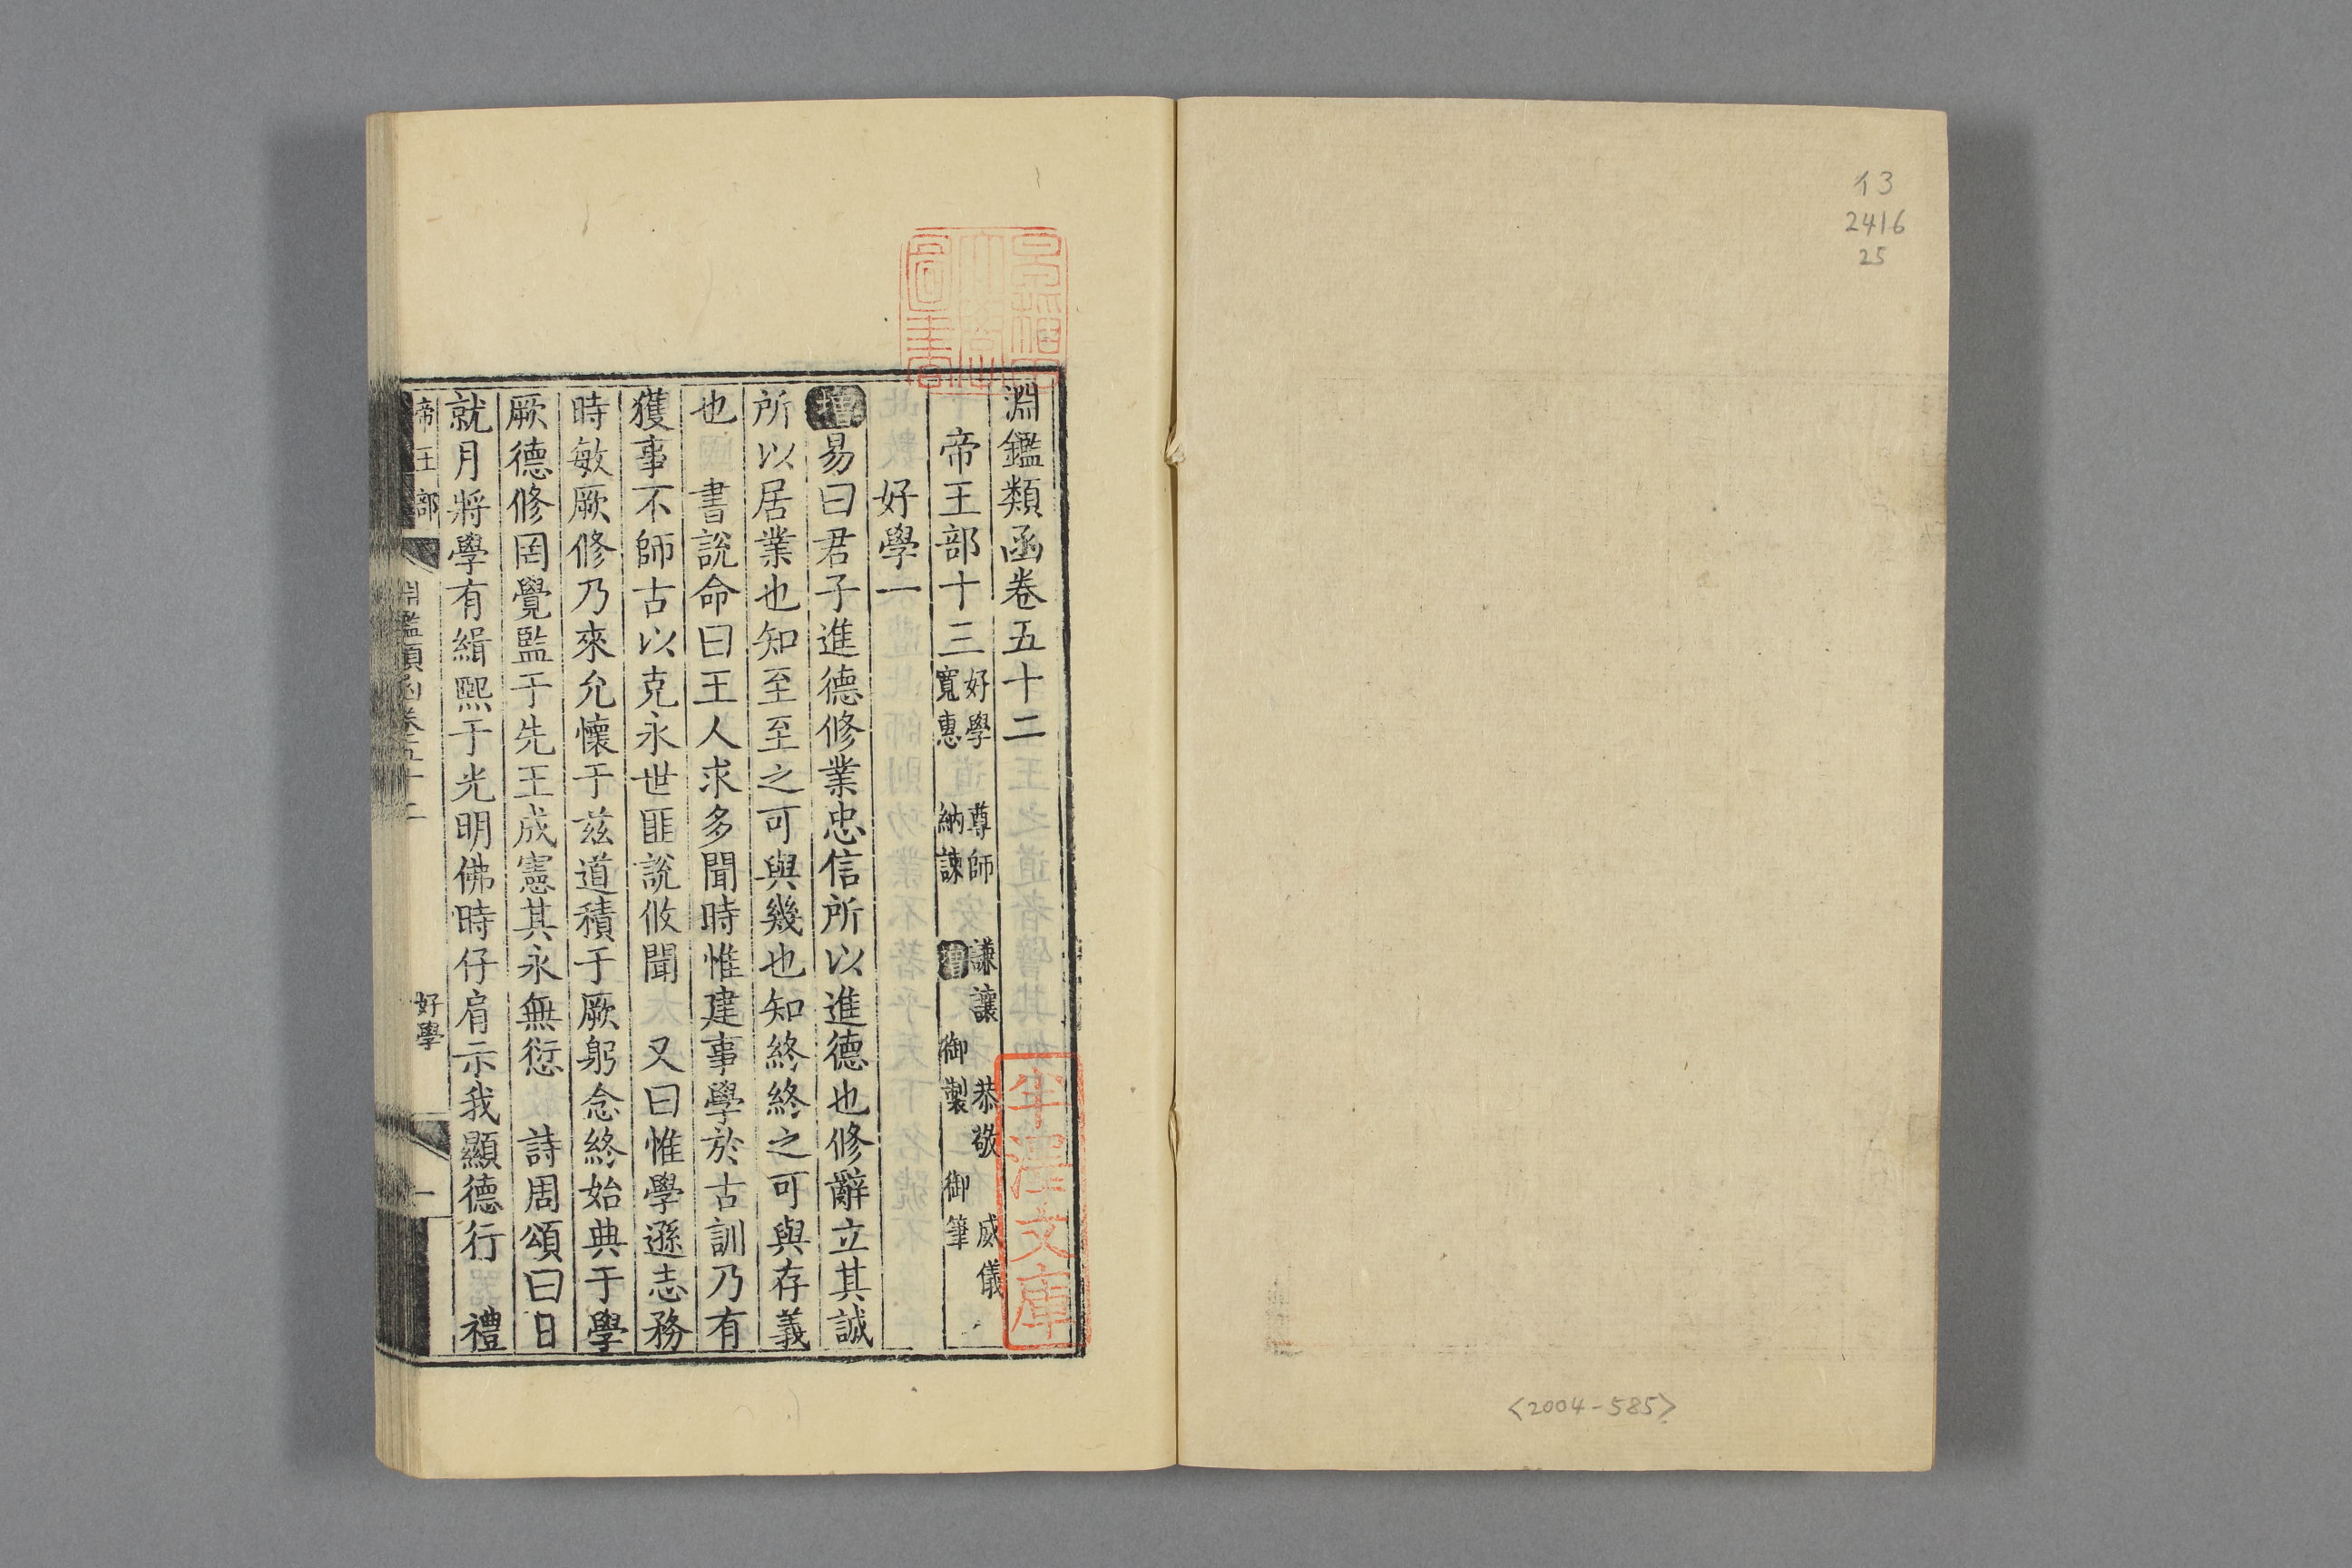 イ3
2416
25
<2004-585>
淵鑑類函卷五十二
帝王部十三 好學 尊師 謙讓 恭敬 威儀
寬惠 納諫 增 御製 御筆
好學一
增易曰君子進德修業忠信所以進德也修辭立其誠
所以居業也知至至之可與幾也知終終之可與存義
也 書說命曰王人求多聞時惟建事學於古訓乃有
獲事不師古以克永世匪說攸聞 又曰惟學遜志務
時敏厥修乃來允懷于茲道積于厥躬念終始典于學
厥德修罔覺監于先王成憲其永無愆 詩周頌曰日
就月將學有緝熙于光明佛時仔肩示我顯德行 禮
帝王部 淵鑑類函卷五十二 好學 一
半澤文庫